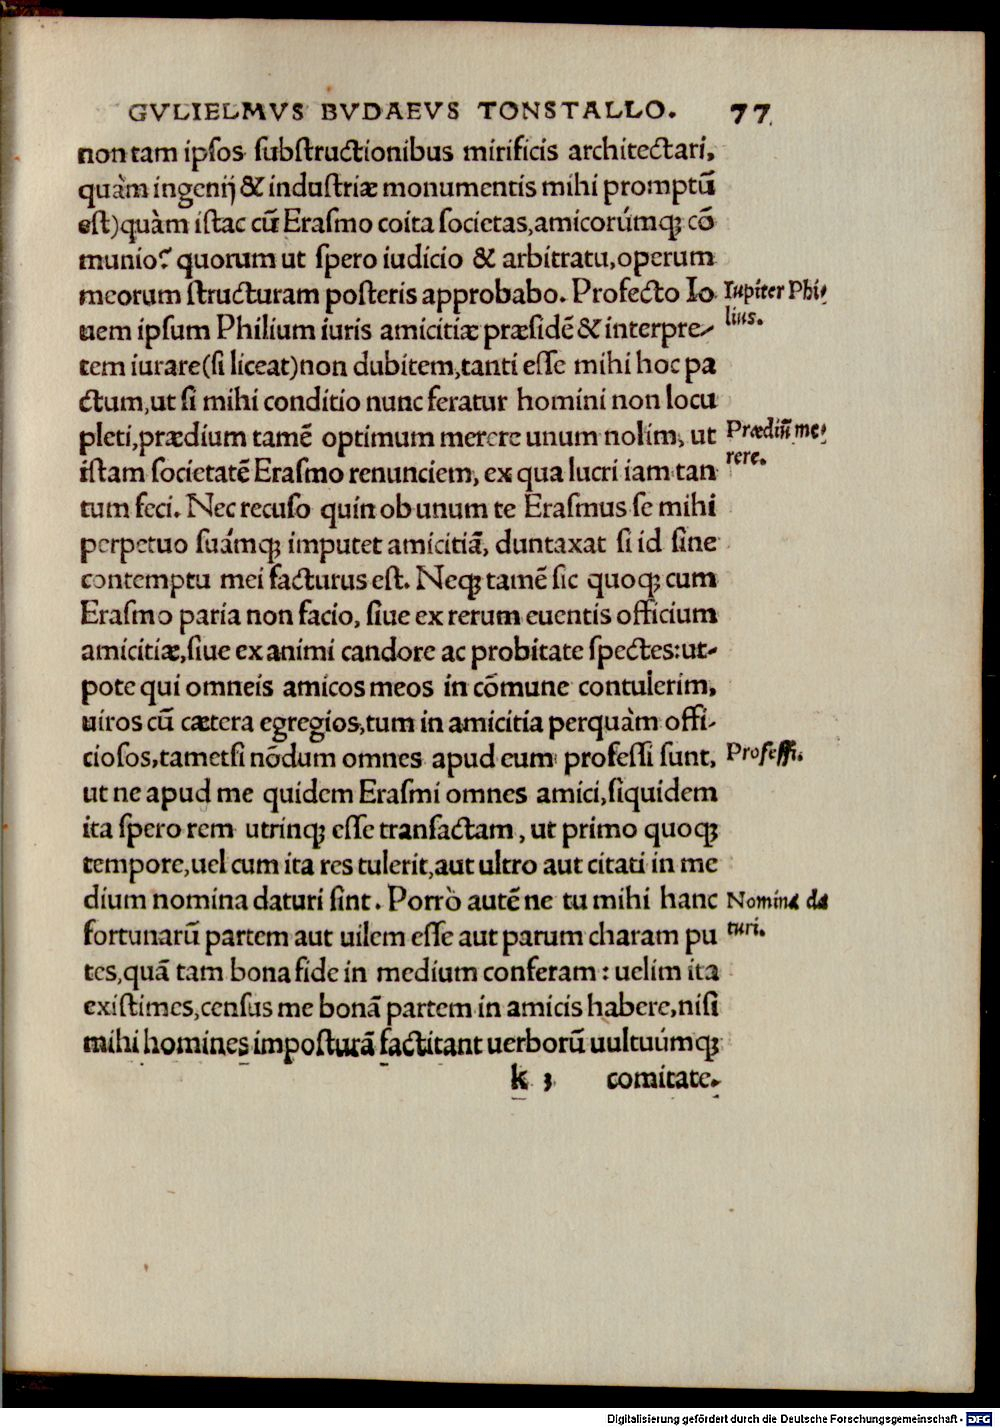 GVLIELMVS BVDAEVS TONSTALLO. 77
non tam ipſos ſubſtructionibus mirificis architectari,
quàm ingenij & induſtriæ monumentis mihi promptũ
eſt)quàm iſtac cũ Eraſmo coita ſocietas,amicorúmq; cõ
munio? quorum ut ſpero iudicio & arbitratu,operum
meorum ſtructuram poſteris approbabo. Profecto Io
Iupiter Phi-
uem ipſum Philium iuris amicitiæ præſidẽ & interpre-
lius.
tem iurare(ſi liceat)non dubitem,tanti eſſe mihi hoc pa
ctum,ut ſi mihi conditio nunc feratur homini non locu
pleti,prædium tamẽ optimum merere unum nolim, ut
Prædiũ me-
iſtam ſocietatẽ Eraſmo renunciem, ex qua lucri iam tan
rere.
tum feci. Nec recuſo quin ob unum te Eraſmus ſe mihi
perpetuo ſuámq; imputet amicitiã, duntaxat ſi id ſine
contemptu mei facturus eſt. Neq; tamẽ ſic quoq; cum
Eraſmo paria non facio, ſiue ex rerum euentis officium
amicitiæ,ſiue ex animi candore ac probitate ſpectes:ut-
pote qui omneis amicos meos in cõmune contulerim,
uiros cũ cætera egregios,tum in amicitia perquàm offi-
cioſos,tametſi nõdum omnes apud eum profeſſi ſunt,
Profeſſi.
ut ne apud me quidem Eraſmi omnes amici,ſiquidem
ita ſpero rem utrinq; eſſe tranſactam, ut primo quoq;
tempore,uel cum ita res tulerit,aut ultro aut citati in me
dium nomina daturi ſint. Porrò autẽ ne tu mihi hanc
Nomina da
fortunarũ partem aut uilem eſſe aut parum charam pu
turi.
tes,quã tam bona fide in medium conferam: uelim ita
exiſtimes,cenſus me bonã partem in amicis habere,niſi
mihi homines impoſturã factitant uerborũ uultuúmq;
k 3 comitate.
Digitalisierung gefördert durch die Deutsche Forschungsgemeinschaft - DFG